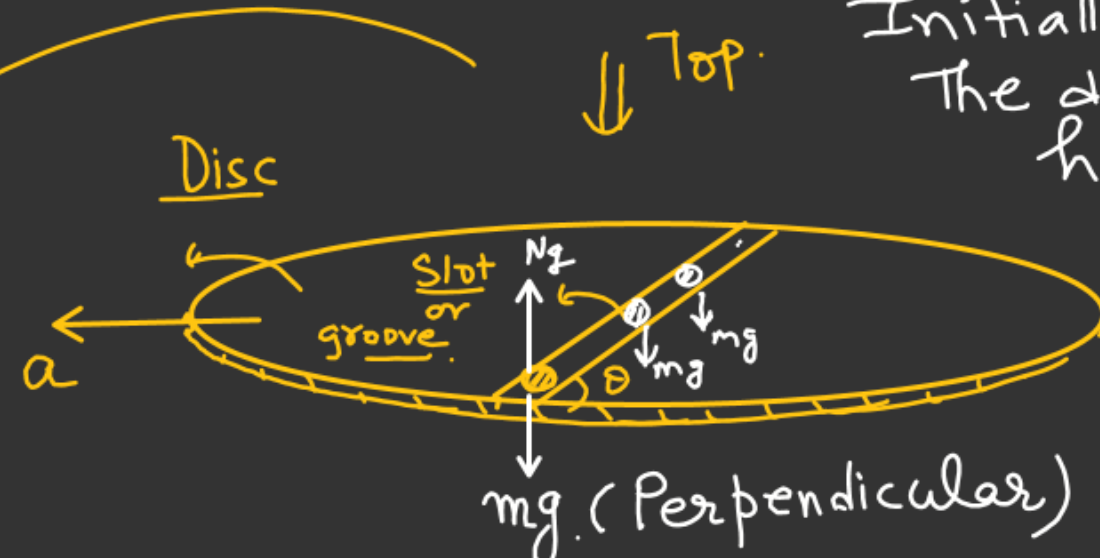 Initiall
Top.
The d
h
Disc
Slot
or
groove.
Ng
mg
mg
θ
a
mg. (Perpendicular)